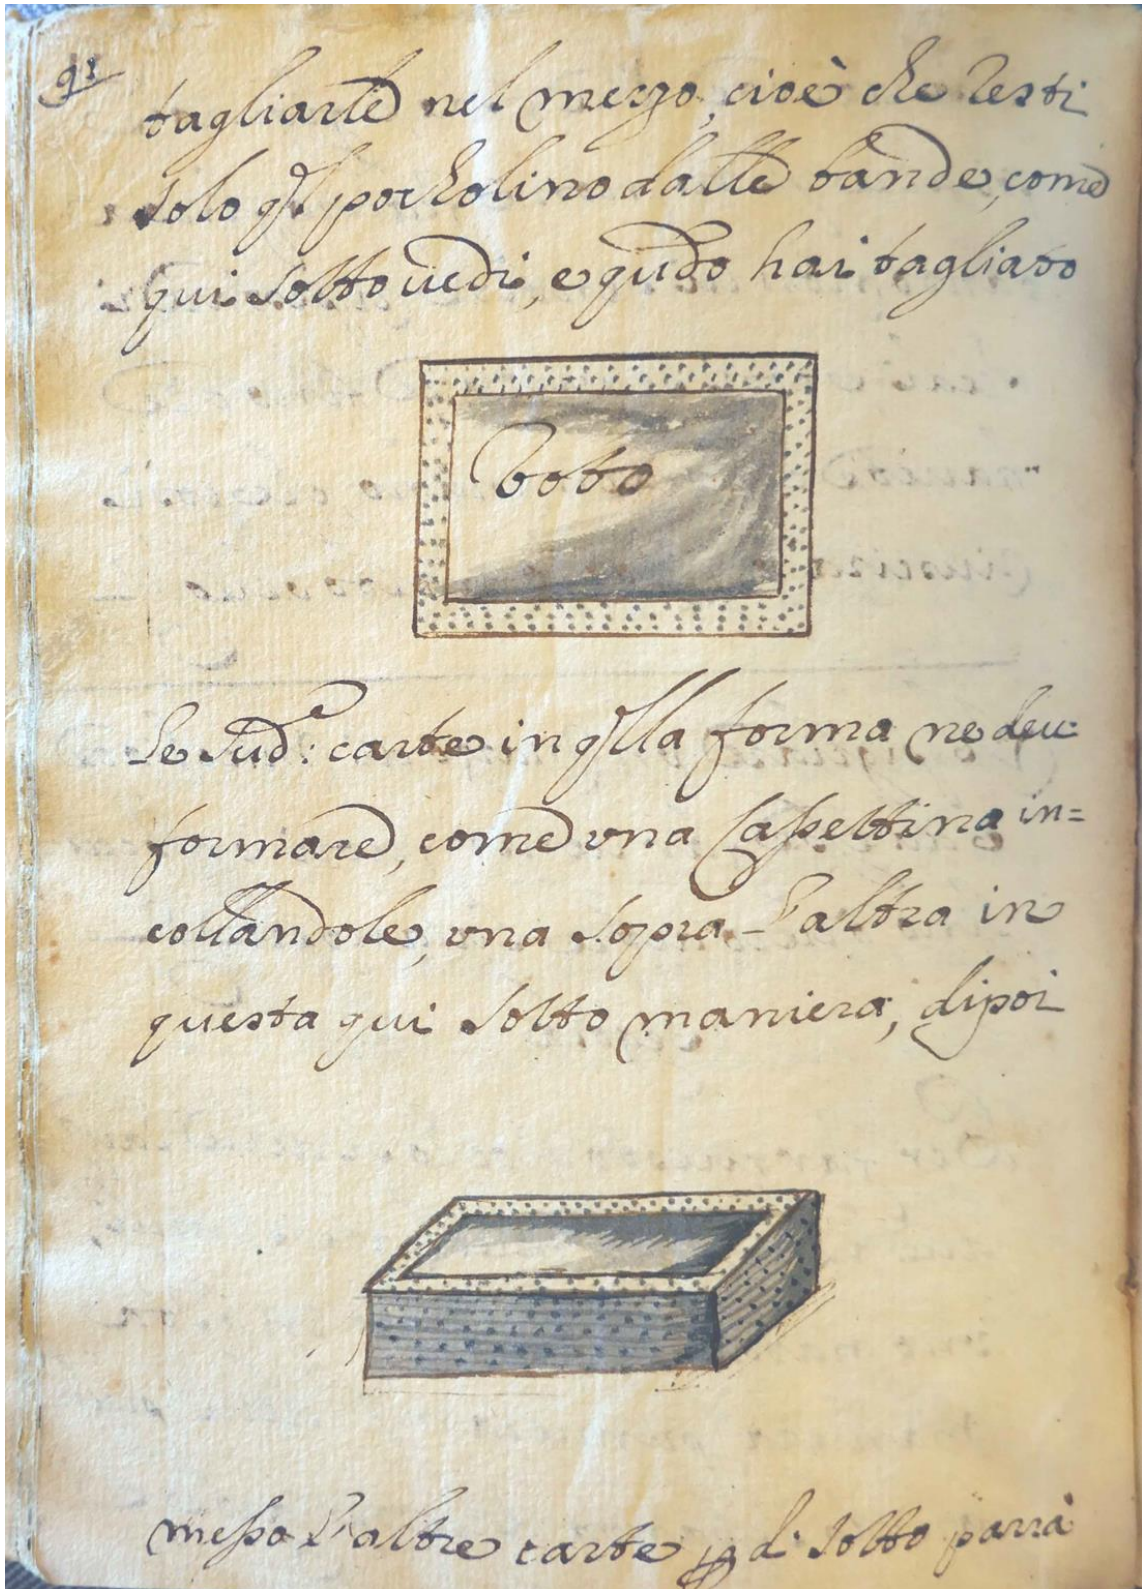 91
tagliarle nel mezzo, cioè che resti
solo ql pocholino dalle bande, come
qui sotto vedi, e qudo hai tagliato
Voto
le sud:e carte in qlla forma ne deui
formare, come vna Cassettina in=
collandole, vna sopra l'altra in
questa qui sotto maniera, dipoi
messo l'altre carte p di sotto parrà